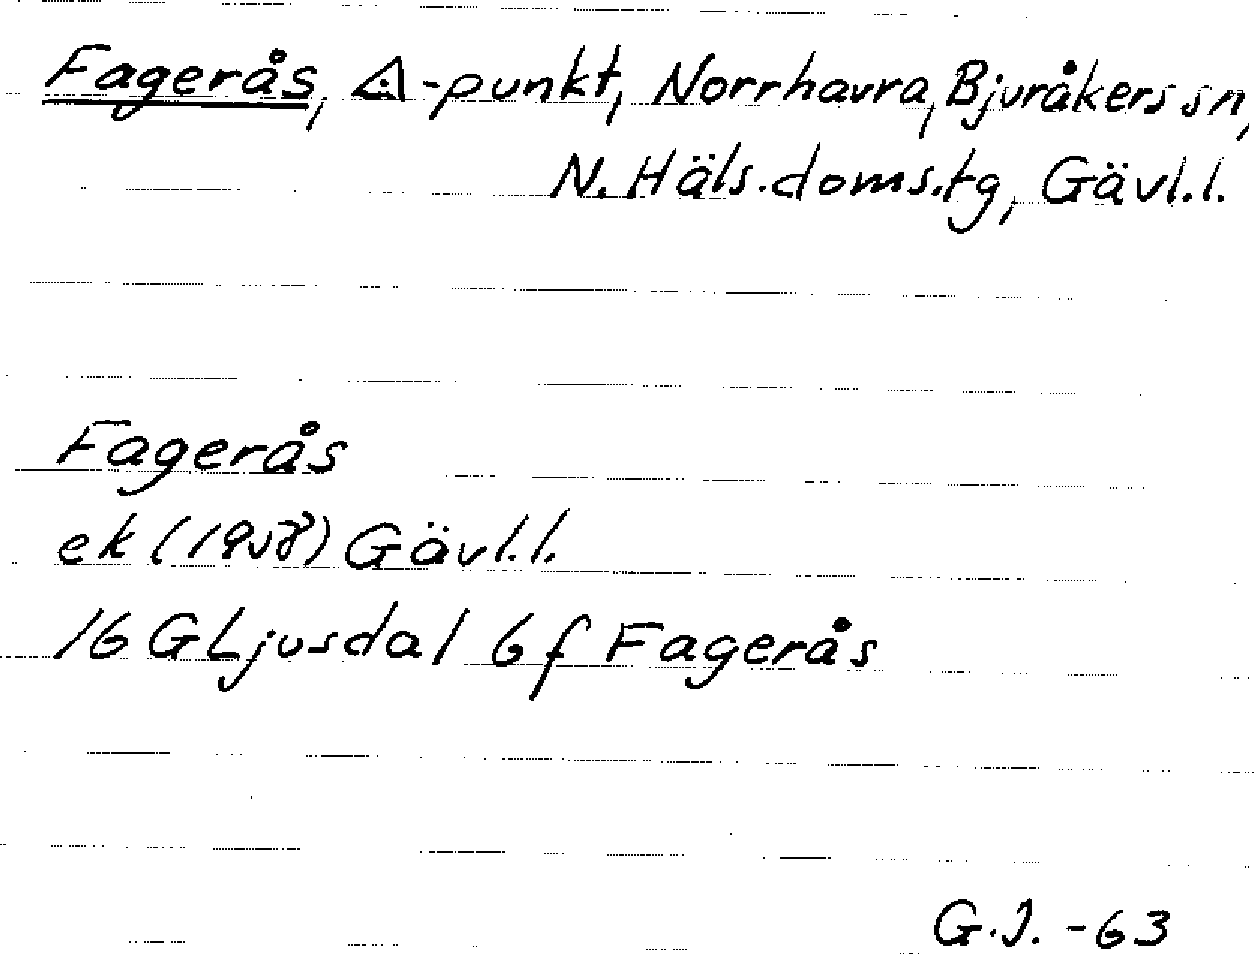 Fagerås, △-punkt, Norrhavra, Bjuråkers sn,
N. Häls. doms.tg, Gävl.l.
Fagerås
ek (1958) Gävl.l.
16 G Ljusdal 6 f Fagerås
G.J. -63